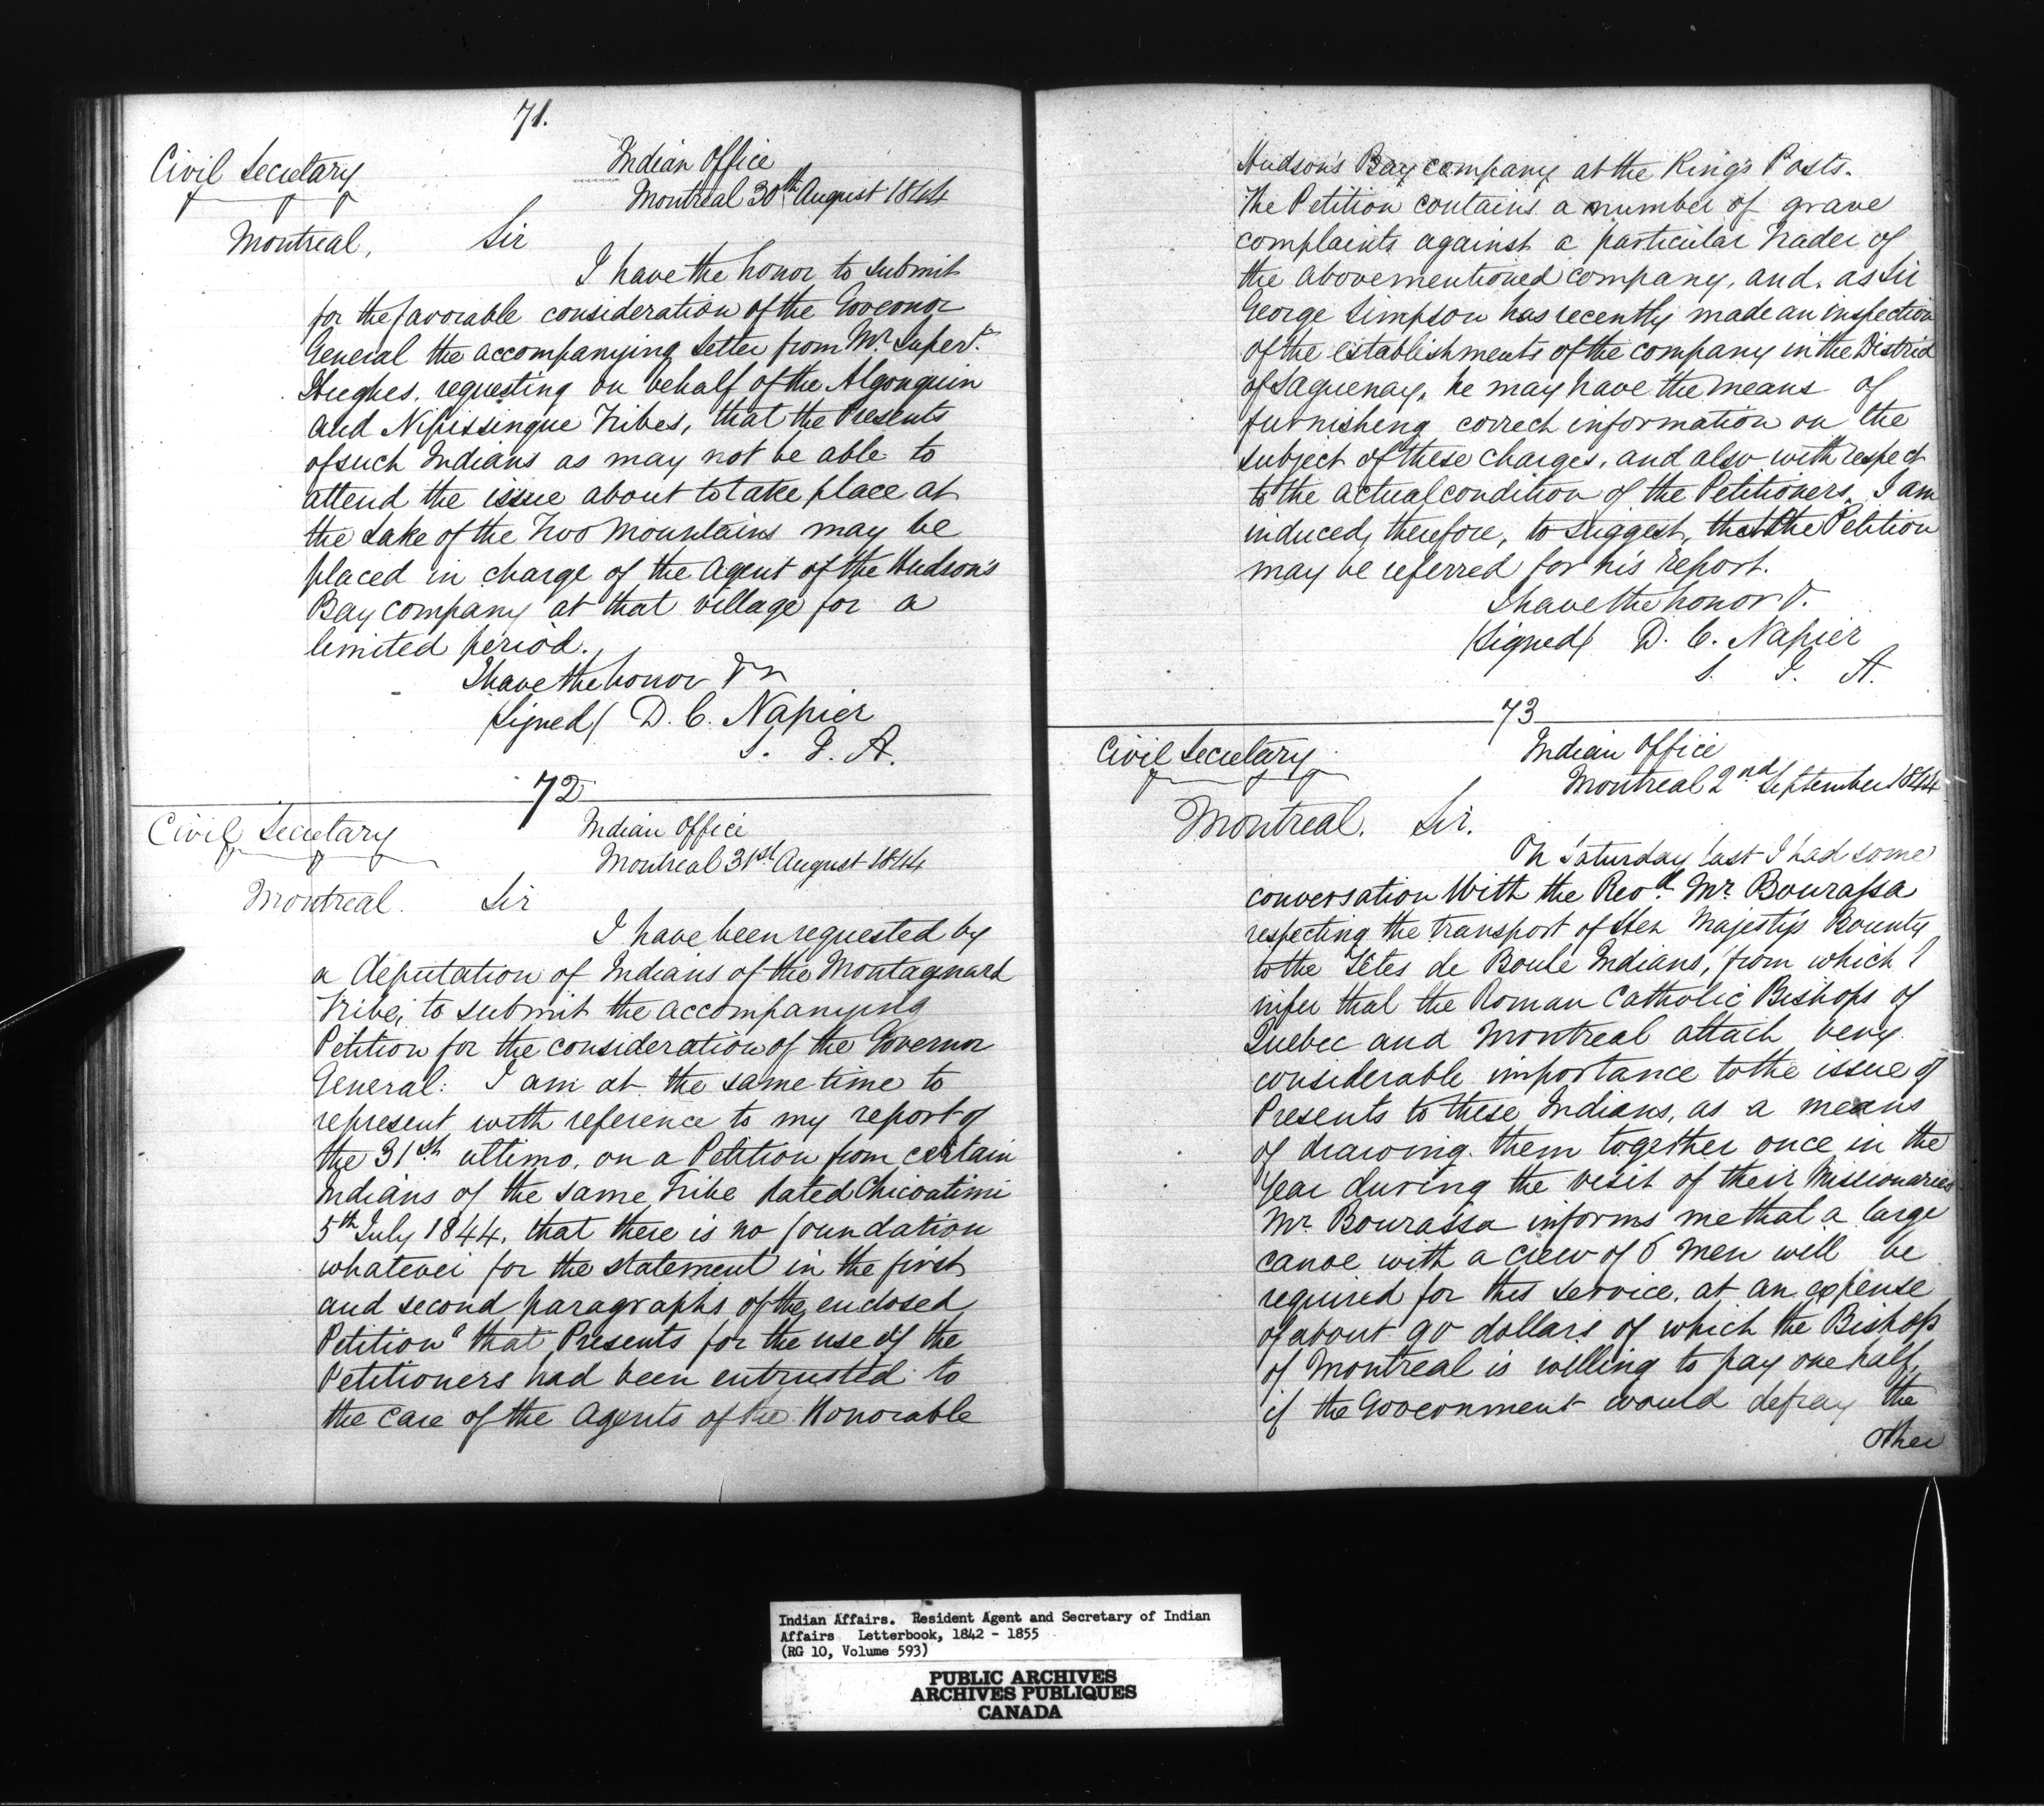 71.
Civil Secretary
Indian Office
Montreal 30th August 1844
Montreal,
Sir
I have the honor to submit
for the favorable consideration of the Governor
General the accompanying Letter from Mr. Supert.
Hughes, requesting on behalf of the Algonquin
and Nipissingue Tribes, that the Presents
of such Indians as may not be able to
attend the issue about to take place at
the Lake of the Two Mountains may be
placed in charge of the Agent of the Hudson's
Bay Company at that village for a
limited period.
I have the honor &c
(Signed) D. C. Napier
S. I. A.
72
Civil Secretary
Indian Office
Montreal 31st August 1844
Montreal.
Sir
I have been requested by
a deputation of Indians of the Montagnard
Tribe, to submit the accompanying
Petition for the consideration of the Governor
General: I am at the same time to
represent with reference to my report of
the 31st ultimo, on a Petition from certain
Indians of the same Tribe dated Chicoatimi
5th July 1844, that there is no foundation
whatever for the statement in the first
and second paragraphs of the enclosed
Petition "that Presents for the use of the
Petitioners had been entrusted to
the care of the Agents of the Honorable
Hudson's Bay Company at the King's Posts.
The Petition contains a number of grave
complaints against a particular Trader of
the abovementioned company, and, as Sir
George Simpson has recently made an inspection
of the establishments of the company in the District
of Saguenay, he may have the means of
furnisheng correch information on the
subject of these charges, and also with respect
to the actual condition of the Petitioners, I am
induced, therefore, to suggest, that the Petition
may be referred for his report.
I have the honor &.
(Signed) D. C. Napier
S. I. A.
73
Civil Secretary
Indian Office
Montreal 2nd September 1844
Montreal.
Sir.
On Saturday last I had some
conversation With the Revd. Mr. Bourassa
respecting the transport of Her Majesty's Bounty
to the Têtes de Boule Indians, from which I
infer that the Roman Catholic Bishops of
Quebec and Montreal attach very
considerable importance to the issue of
Presents to these Indians, as a means
of drawing them together once in the
Year during the visit of their Missionaries
Mr. Bourassa informs me that a large
canoe with a crew of 6 Men will be
required for this service, at an expense
of about 90 dollars of which the Bishop
of Montreal is willing to pay one half,
if the Government would defray the
other
Indian Affairs. Resident Agent and Secretary of Indian
Affairs Letterbook, 1842 - 1855
(RG 10, Volume 593)
PUBLIC ARCHIVES
ARCHIVES PUBLIQUES
CANADA